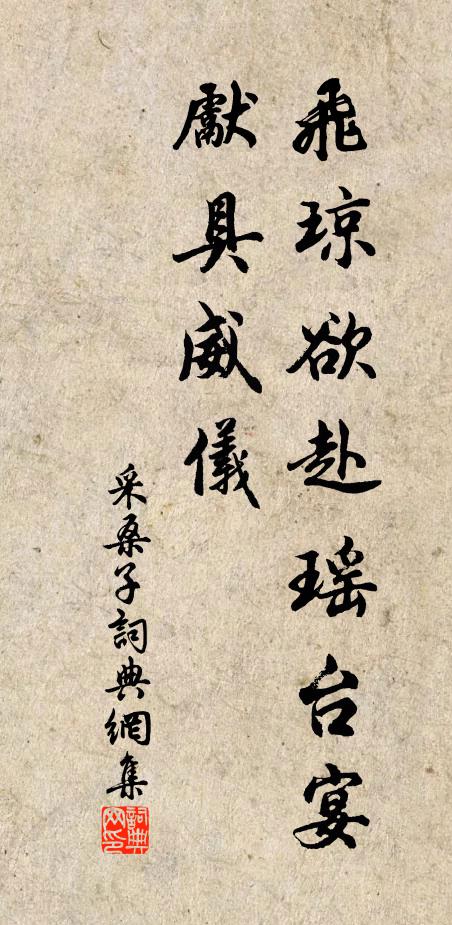 飛琼欲赴瑶台宴
獻具威儀
采桑子詞典網集
詞典
网印